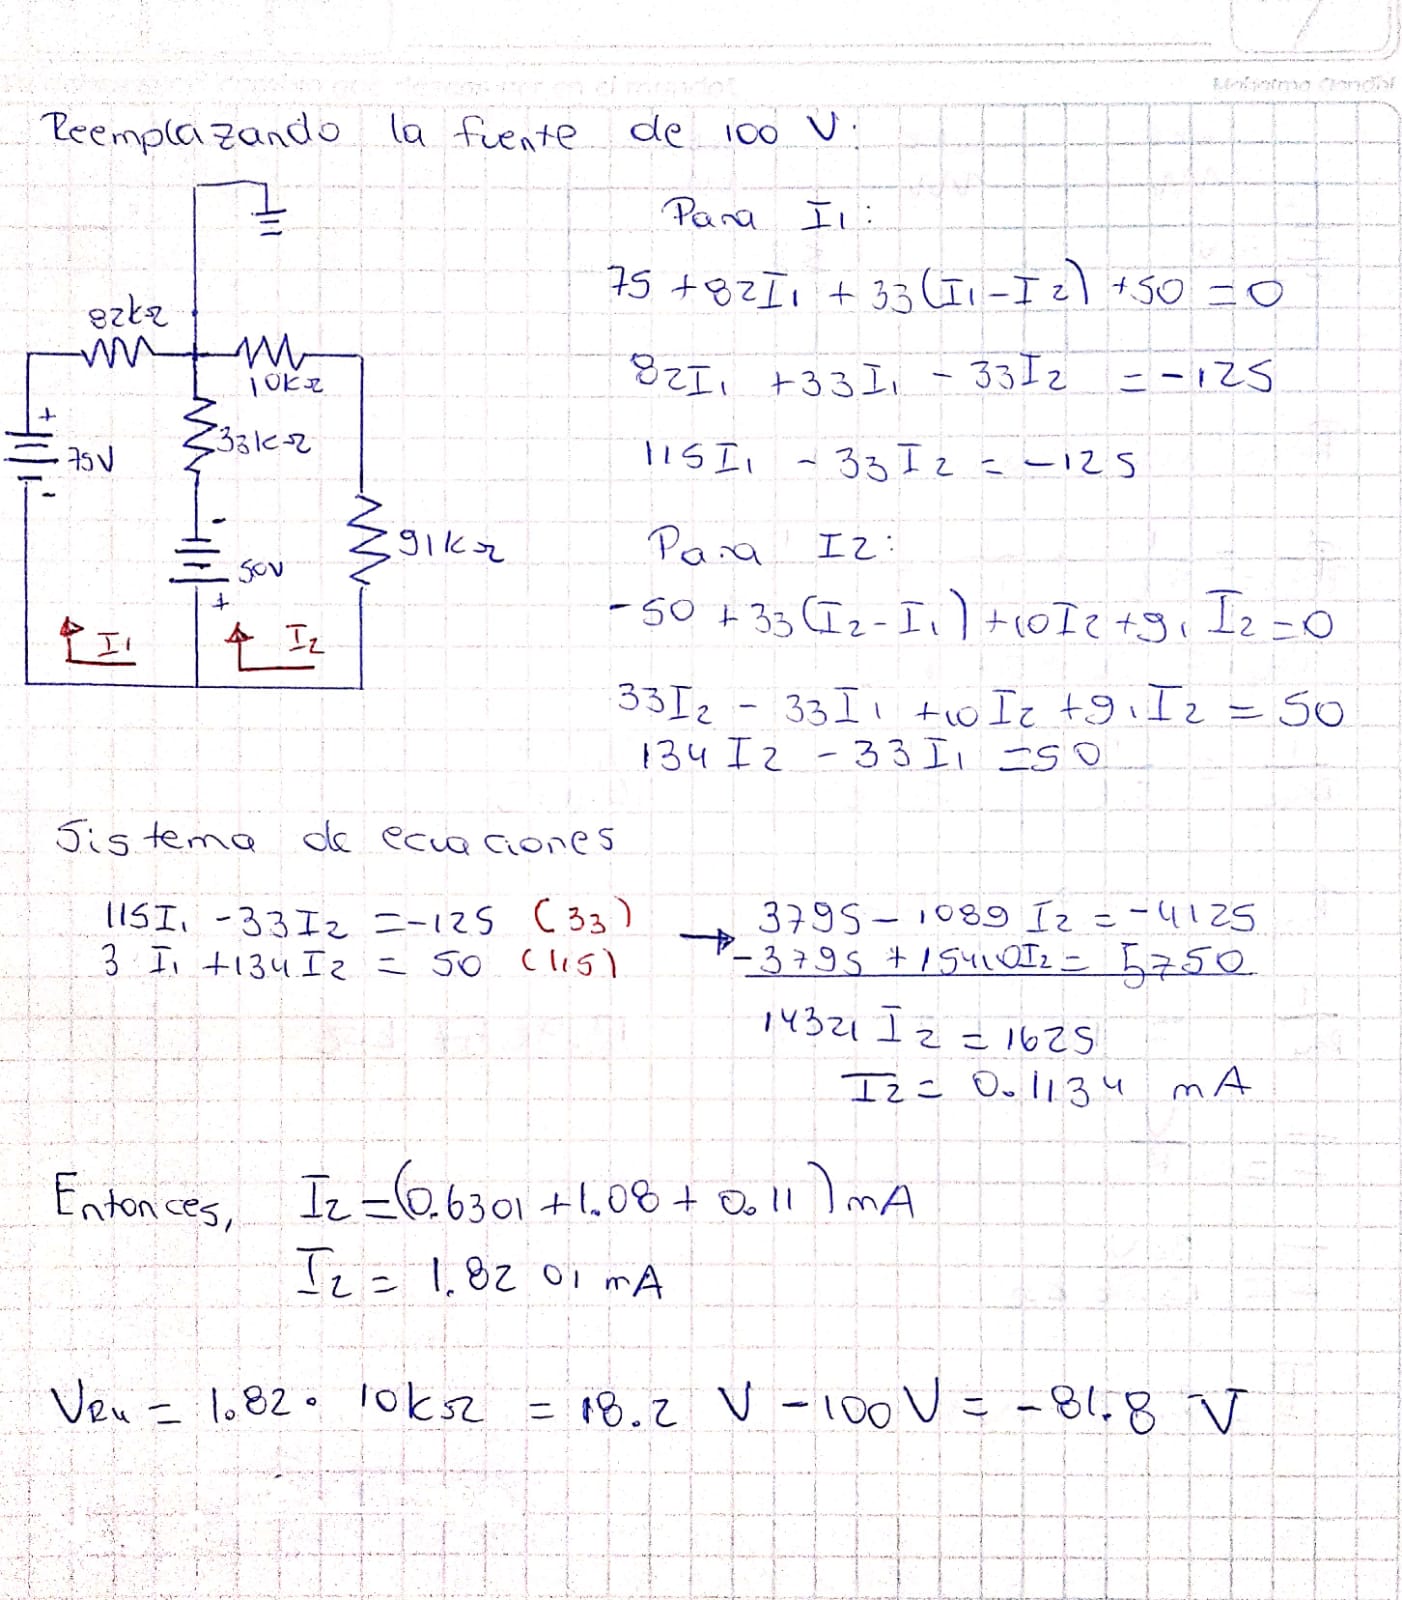 Mahatma Gandhi
Reemplazando la fuente de 100 V:
82kΩ
10kΩ
33kΩ
+
75V
-
-
50V
+
91kΩ
I1
I2
Para I1:
75 + 82I1 + 33(I1 - I2) + 50 = 0
82I1 + 33I1 - 33I2 = -125
115I1 - 33I2 = -125
Para I2:
-50 + 33(I2 - I1) + 10I2 + 91I2 = 0
33I2 - 33I1 + 10I2 + 91I2 = 50
134I2 - 33I1 = 50
Sistema de ecuaciones
115I1 - 33I2 = -125 (33)
3 I1 + 134I2 = 50 (115)
→ 3795 - 1089 I2 = -4125
-3795 + 15410I2 = 5750
14321 I2 = 1625
I2 = 0.1134 mA
Entonces, I2 = (0.6301 + 1.08 + 0.11) mA
I2 = 1.8201 mA
VR4 = 1.82 · 10kΩ = 18.2 V - 100V = -81.8 V